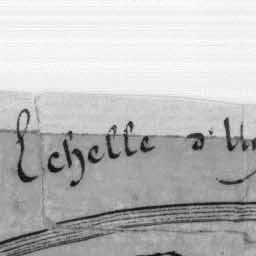 Echelle d'Un